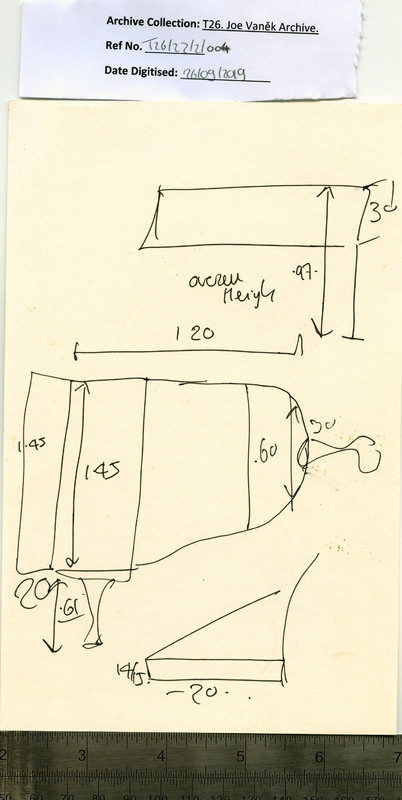 Archive Collection: T26. Joe Vaněk Archive.
Ref No. T26/27/2/004
Date Digitised: 26/09/2019
30
.97.
overall
Height
1 20
1.45
1.45
.60
30
20
.61
14/15
-20-.
2 3 4 5 6 7